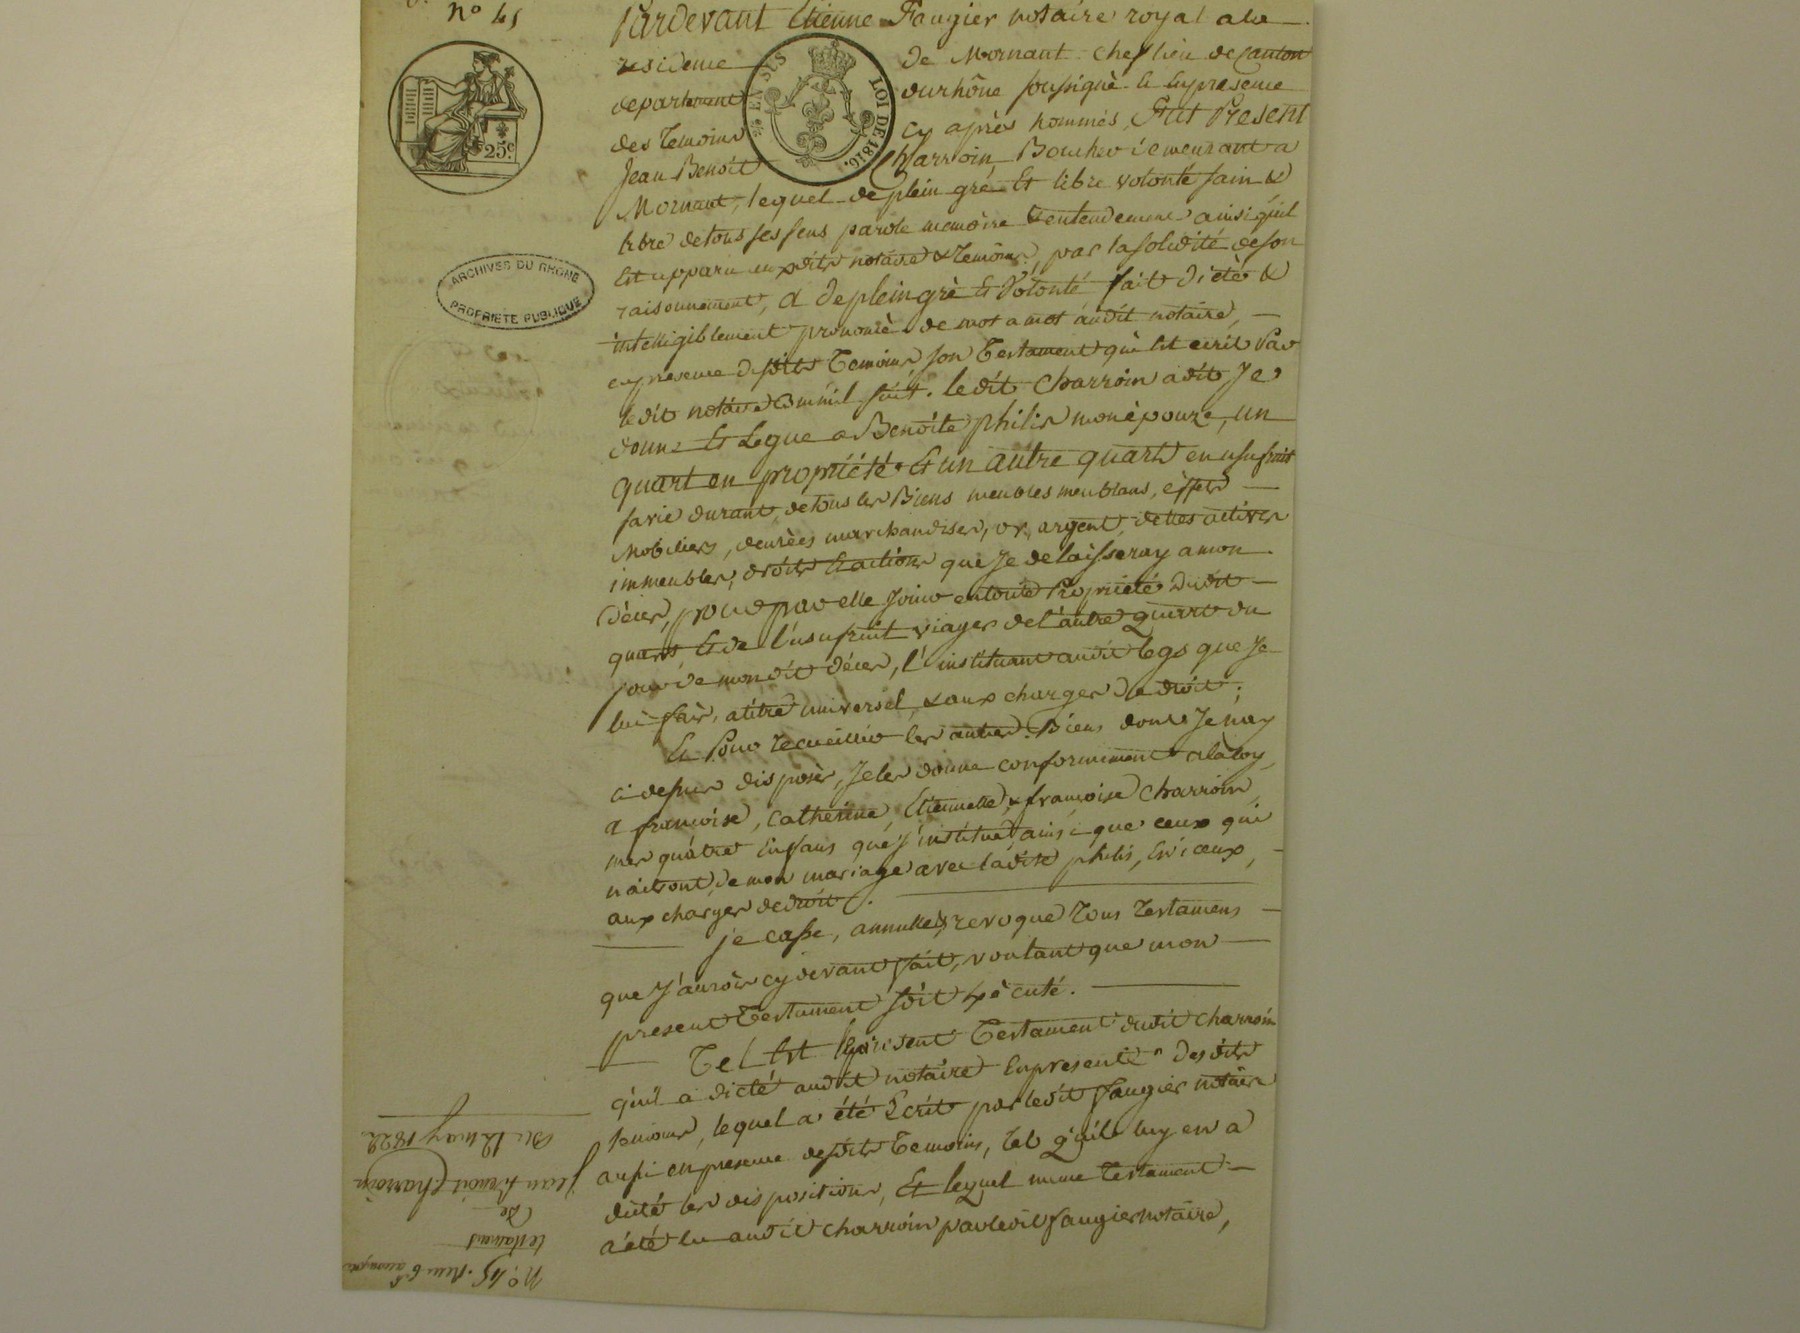 n° 45
Pardevant Etienne Faugier notaire royal a la
residence de Mornant chef lieu de canton
departement du rhône soussigné & en presence
des temoins cy après nommés, Fut Present
Jean Benoit Charroin Boucher demeurant a
Mornant, lequel de plein gré et libre volonté sain &
libre de tous ses sens parole memoire & entendement ainsi quil
est apparu auxdits notaire & temoins, par la solidité de son
raisonnement, a de plein gré et volonté fait dicté &
intelligiblement prononcé de mot a mot audit notaire,
en presence desdits temoins son Testament qui est ecrit par
ledit notaire comm'il suit. ledit Charroin a dit Je
donne et Legue a Benoite philis mon épouze, un
quart en propriété et un autre quart en usufruit
sa vie durant, de tous les Biens meubles meublans, effets
Mobiliers, denrées marchandises, or, argent, dettes actives
immeubles, droits et actions que Je delaisseray a mon
décès, pour par elle jouir en toute Propriété dudit
quart et de l'usufruit viager de l'autre quart du
jour de mondit décès, l'instituant audit legs que Je
lui fais, a titre universel, & aux charges de droit;
Et Pour recueillir les autres Biens dont Je n'ay
ci dessus disposés, Je les donne conformément a la loy,
a françoise, Catherine, Etiennette, & françoise Charroin,
mes quatre Enfans que J'institue, ainsi que ceux qui
naitront de mon mariage avec ladite philis, En iceux,
aux charges de droit.
je casse, annulle & revoque Tous Testamens
que J'aurois cy devant fait, voulant que mon
present Testament soit exécuté.
Tel Est le present Testament dudit Charroin
qu'il a dicté audit notaire En presence desdits
temoins, lequel a été Ecrit par ledit faugier notaire
aussi en presence desdits Temoins, tel qu'il luy en a
dicté les dispositions, Et lequel meme Testament
a été lu audit Charroin par ledit faugier notaire,
25c
% EN SUS
LOI DE 1816.
ARCHIVES DU RHONE
PROPRIETE PUBLIQUE
N° 45.
testament
De
Jean Benoit Charroin
Du 12 may 1822